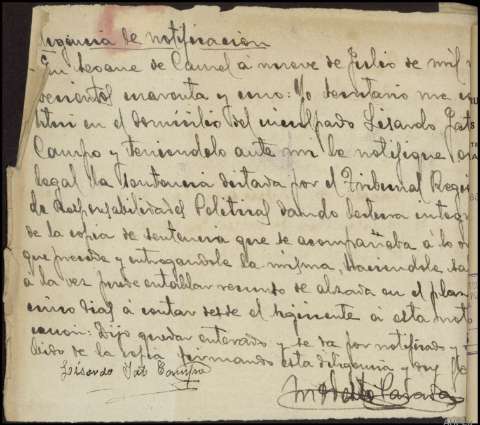 Diligencia de notificación
En Seoane de Caurel a nueve de Julio de mil
vecientos cuarenta y uno: Yo Secretario me
titui en el domicilio del inculpado Lisardo
Campo y teniendolo ante mi le notifique
legal la sentencia dictada por el Tribunal Regi
de Responsabilidades Politicas dando lectura integra
de la copia de sentencia que se acompañaba á la
que precede y entregandole la misma, haciendole
a la vez puede entablar recurso de alzada en el plazo
cinco dias á contar desde el siguiente a esta noti
cacion: Dijo quedar enterado y se da por notificado y
bido de la copia firmando esta diligencia y doy fe
Lisardo Campo
Modesto Parada